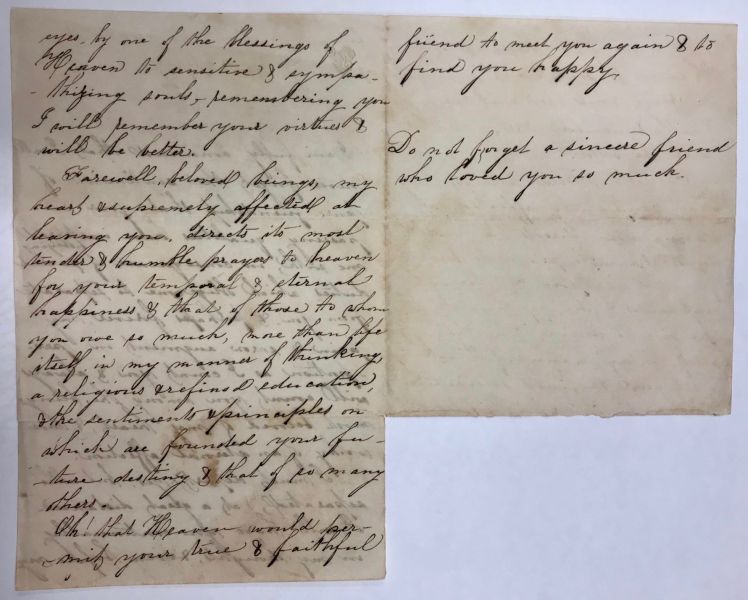 eyes, by one of the blessings of
Heaven to sensitive & sympa-
-thizing souls, - remembering you
I will remember your virtues &
will be better.
Farewell, beloved beings, my
heart & supremely affected at
leaving you, directs its most
tender & humble prayers to heaven
for your temporal & eternal
happiness & that of those to whom
you owe so much, more than life
itself in my manner of thinking,
a religious & refined education,
& the sentiments & principles on
which are founded your fu-
-ture destiny & that of so many
others.
Oh! that Heaven would per-
-mit your true & faithful
friend to meet you again & to
find you happy,
Do not forget a sincere friend
who loved you so much.